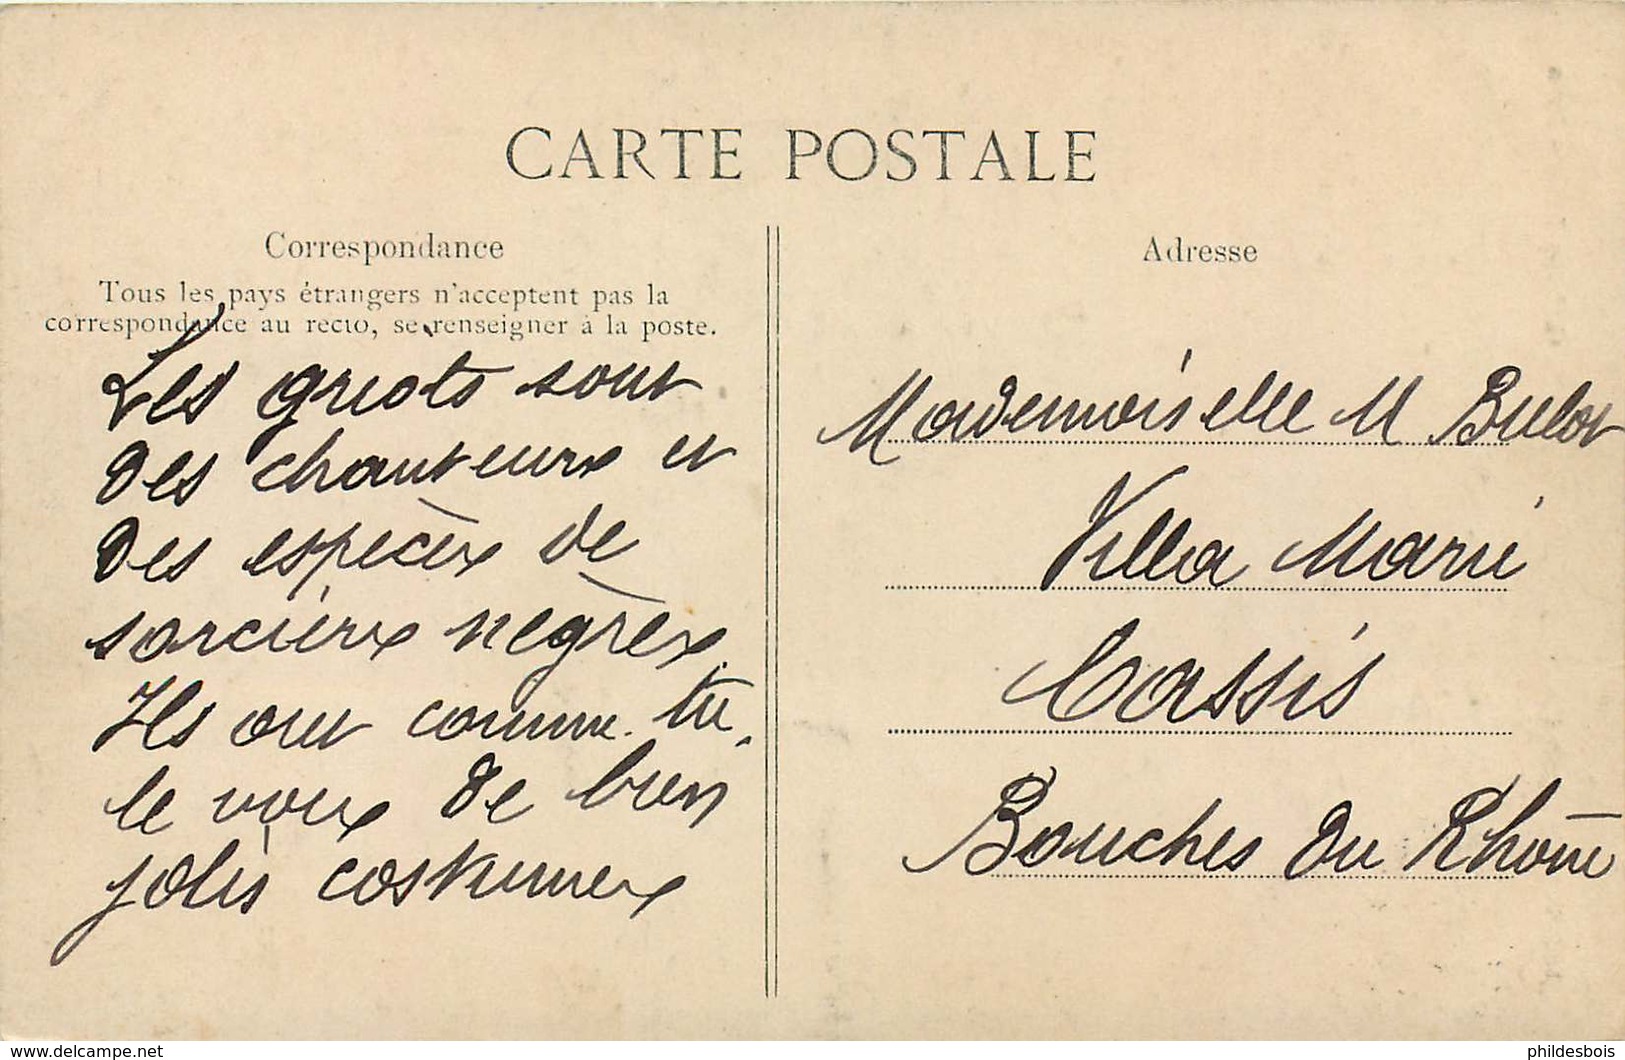 CARTE POSTALE
Correspondance
Tous les pays étrangers n'acceptent pas la
correspondance au recto, se renseigner à la poste.
Les griots sont
des chanteurs et
des espèces de
sorciers nègres.
Ils ont comme tu
le vois de bien
jolis costumes
Adresse
Mademoiselle M Bulot
Villa Marie
Cassis
Bouches du Rhône
www.delcampe.net
phildesbois